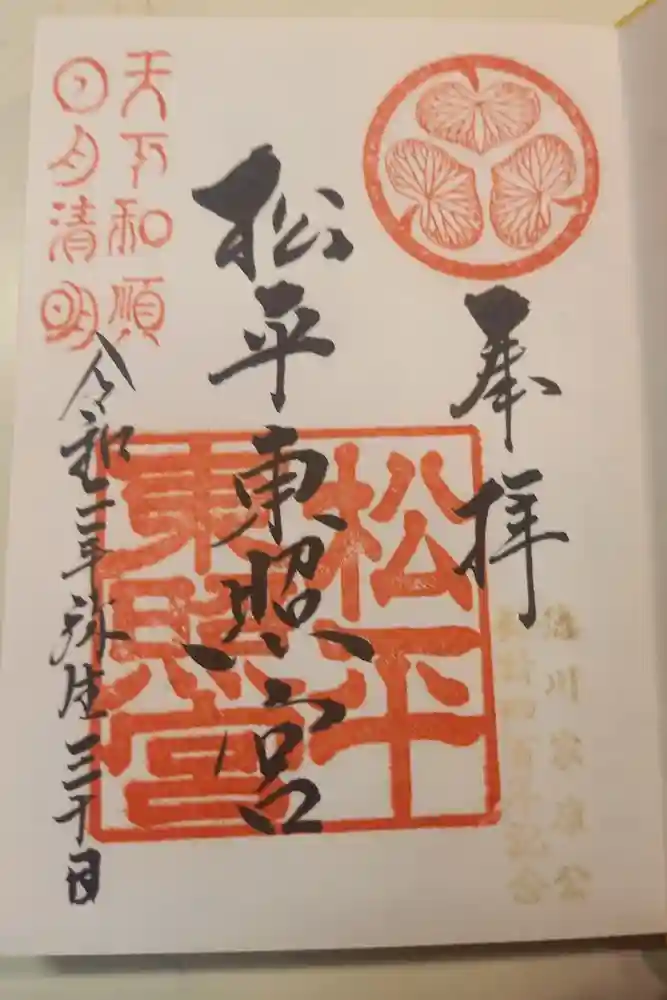 奉拝
徳川家康公
四百年記念
松平東照宮
松平
東照宮
天下和順
日月清明
令和二年弥生三十日